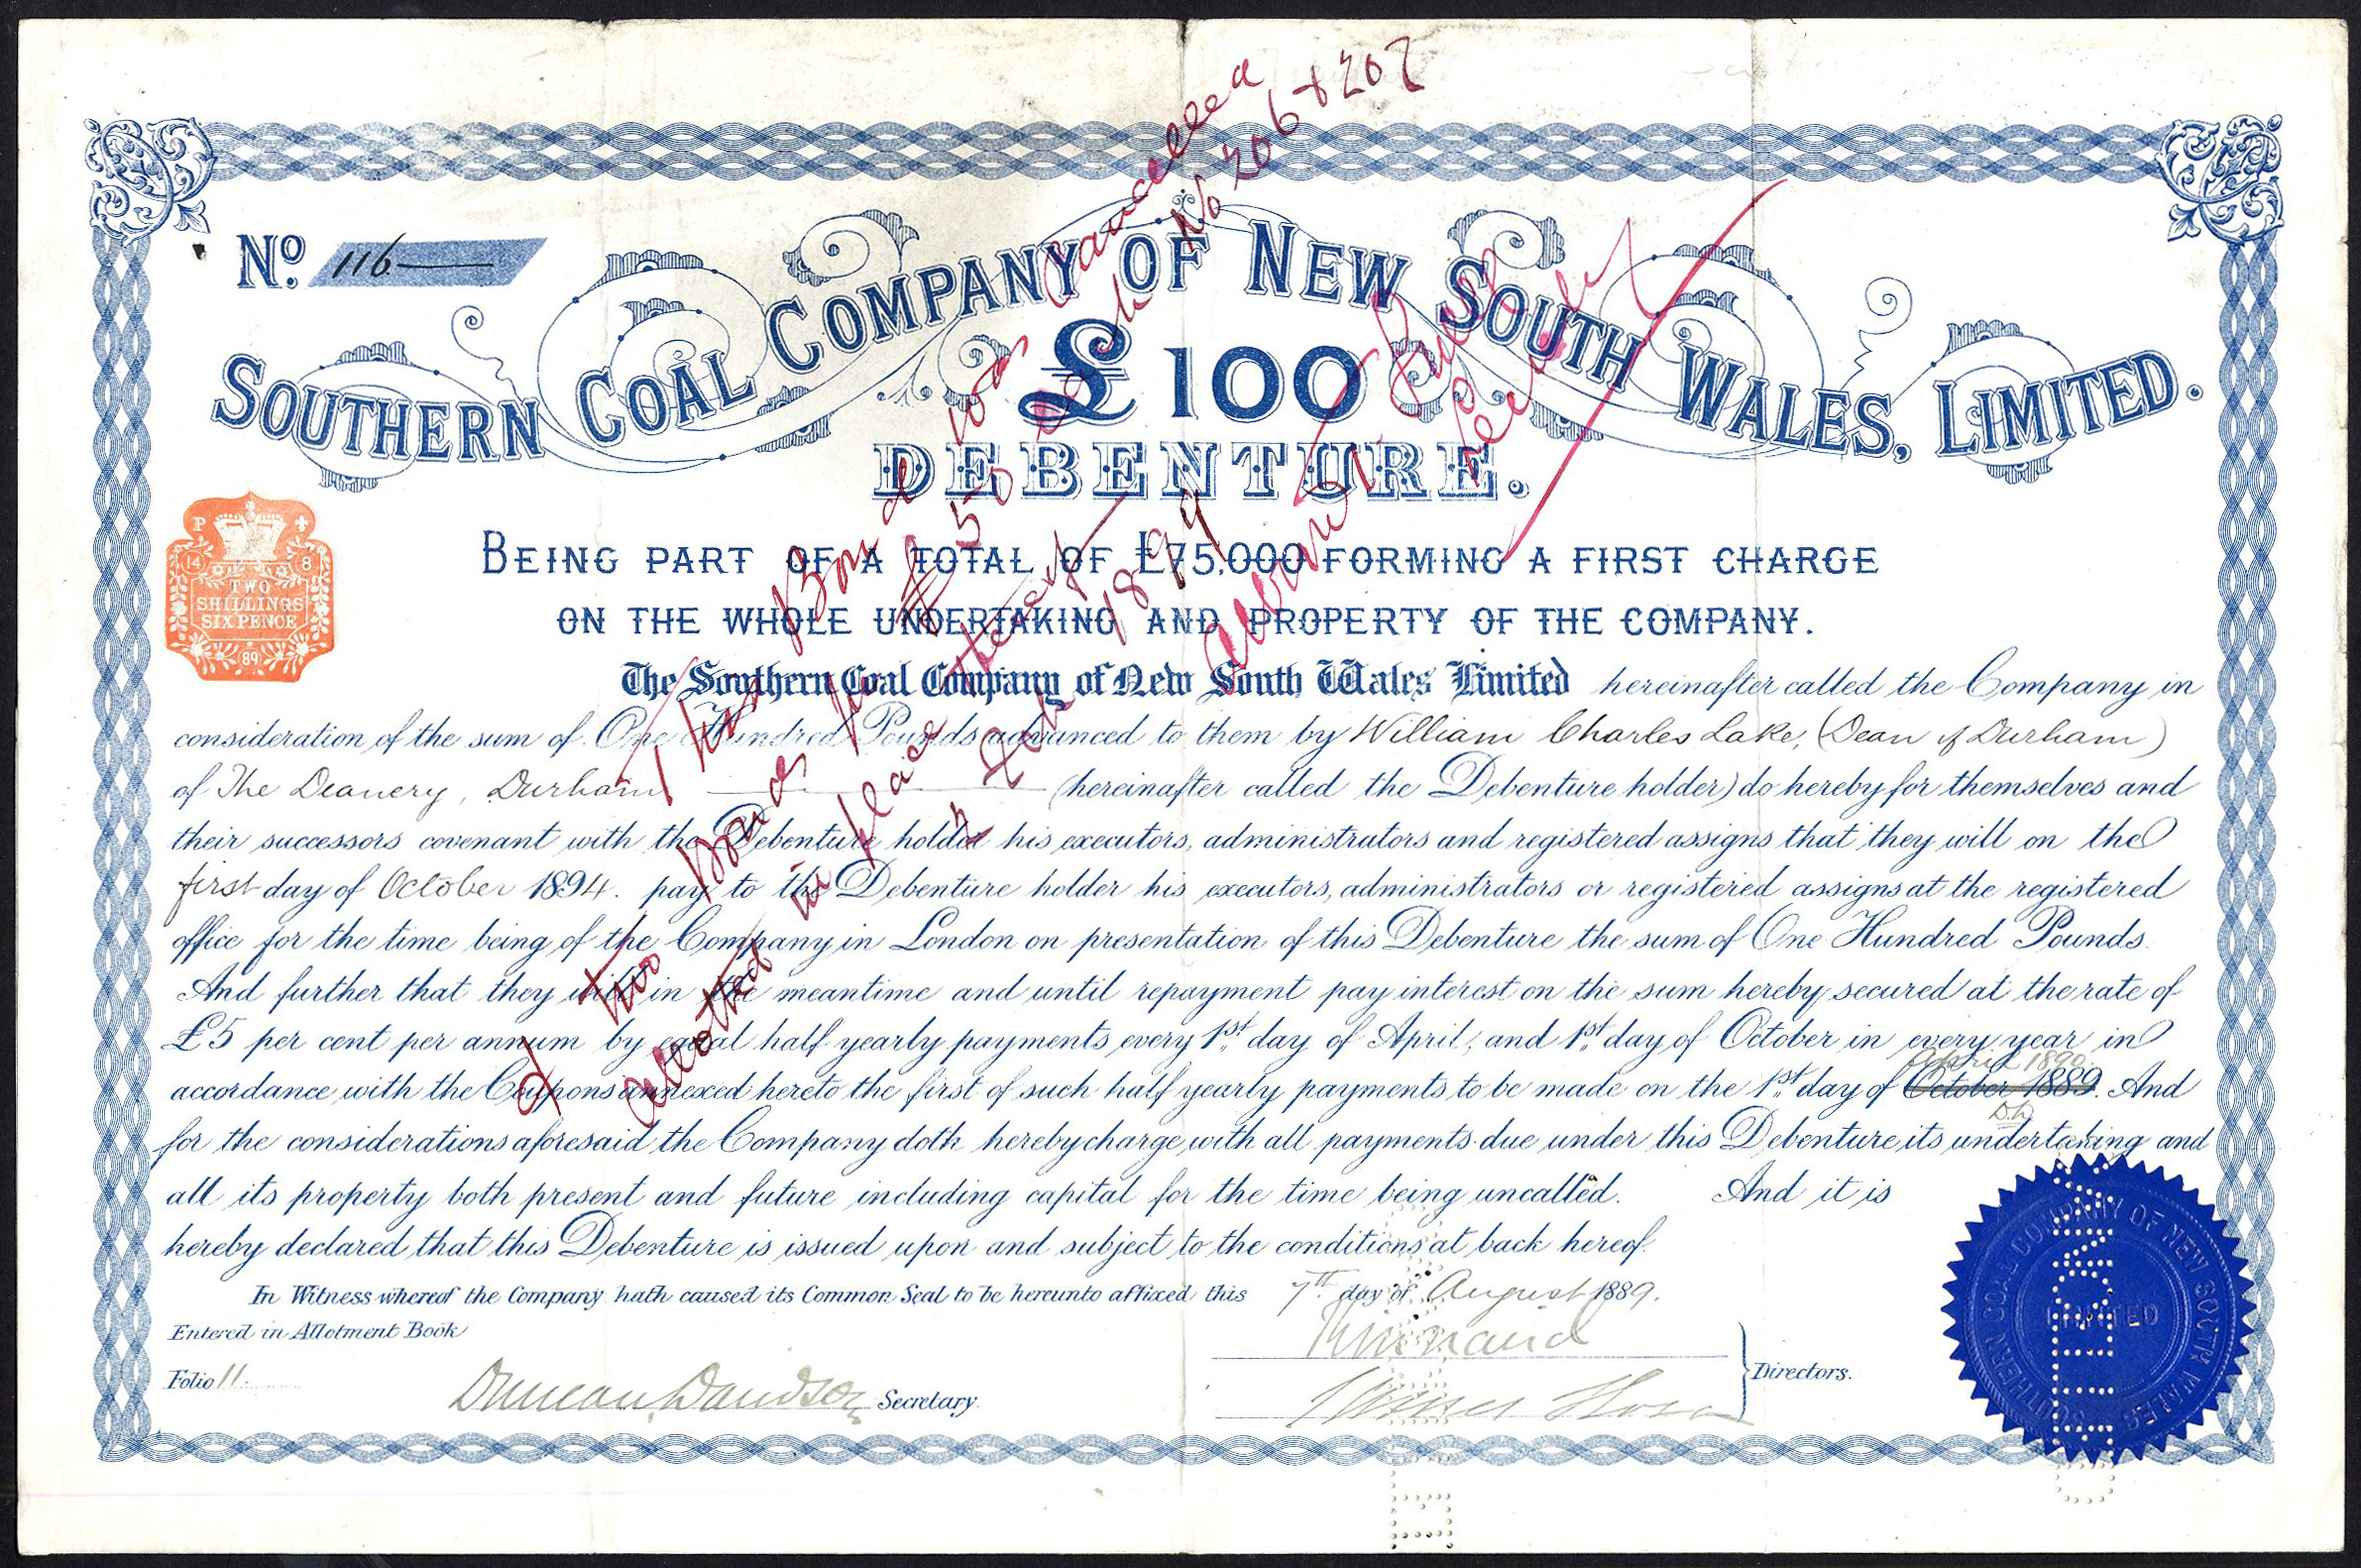 No. 116
SOUTHERN COAL COMPANY OF NEW SOUTH WALES, LIMITED.
£100
DEBENTURE.
BEING PART OF A TOTAL OF £75,000 FORMING A FIRST CHARGE
ON THE WHOLE UNDERTAKING AND PROPERTY OF THE COMPANY.
P
14 8
TWO
SHILLINGS
SIXPENCE
89
The Southern Coal Company of New South Wales Limited hereinafter called the Company in
consideration of the sum of One Hundred Pounds advanced to them by William Charles Lake, (Dean of Durham)
of The Deanery, Durham (hereinafter called the Debenture holder) do hereby for themselves and
their successors covenant with the Debenture holder his executors, administrators and registered assigns that they will on the
first day of October 1894. pay to the Debenture holder his executors, administrators or registered assigns at the registered
office for the time being of the Company in London on presentation of this Debenture the sum of One Hundred Pounds.
And further that they will in the meantime and until repayment pay interest on the sum hereby secured at the rate of
£5 per cent per annum by equal half yearly payments every 1st day of April, and 1st day of October in every year in
April 1890
accordance with the Coupons annexed hereto the first of such half yearly payments to be made on the 1st day of October 1889. And
D.D.
for the considerations aforesaid the Company doth hereby charge with all payments due under this Debenture its undertaking and
all its property both present and future including capital for the time being uncalled. And it is
hereby declared that this Debenture is issued upon and subject to the conditions at back hereof.
In Witness whereof the Company hath caused its Common Seal to be hereunto affixed this 7th day of August 1889.
Entered in Allotment Book
Folio 11.
Duncan Davidson Secretary.
Kinnaird
Directors.
SOUTHERN COAL COMPANY OF NEW SOUTH WALES
LIMITED
This Bond was Cancelled
& two bonds for £50 each No 206 & 207
allotted in place thereof